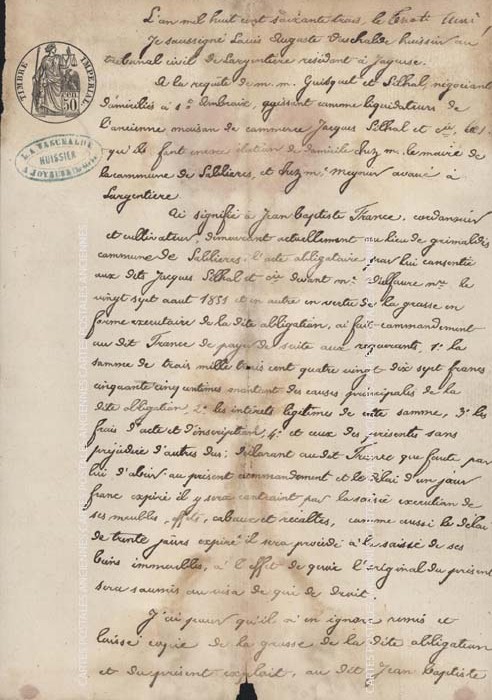 L'an mil huit cent soixante trois, le trente Avril
Je soussigné Louis Auguste Vaschalde huissier au
tribunal civil de Largentière résidant à Joyeuse.
A la requête de m. m. Guibquet et Silhal, négociants
domiciliés à St Ambroix, agissant comme liquidateurs de
l'ancienne maison de commerce Jacques Silhal et cie,
qu'ils font encore élection de domicile chez mr le maire de
la commune de Sablières, et chez me Meynier avoué à
Largentière
Ai signifié à Jean Baptiste France, cordonnier
et cultivateur, demeurant actuellement au lieu de
commune de Sablières. l'acte obligataire par lui consentie
aux dits Jacques Silhal et cie devant me re le
vingt sept aout 1851 et en outre en vertu de la grosse en
forme executaire de la dite obligation, ai fait commandement
au dit France de payer de suite aux requérants, 1° la
somme de trois mille trois cent quatre vingt dix sept francs
cinquante cinq centimes montant des causes principales de la
dite obligation, 2° les intérêts légitimes de cette somme, 3° les
frais d'acte et d'inscription, 4° et ceux des présentes sans
préjudice d'autres dus; déclarant au dit France que faute par
lui d'obéir au présent commandement et le délai d'un jour
franc expiré il y sera contraint par la saisie execution de
ses meubles, effets, cabaux et récoltes, comme aussi le délai
de trente jours expiré il sera procédé à la saisie de ses
biens immeubles, à l'effet de quoi l'original du présent
sera soumis au visa de qui de droit.
J'ai pour qu'il n'en ignore remis et
laissé copie de la grosse de la dite obligation
et du présent exploit, au dit Jean Baptiste
TIMBRE IMPÉRIAL
50 CEN
L. A. VASCHALDE
HUISSIER
A JOYEUSE